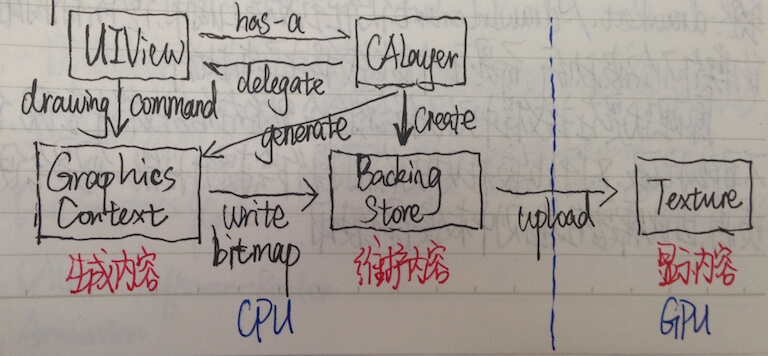 has-a
UIView
CALayer
delegate
drawing command
generate
create
Graphics
Context
write
bitmap
Backing
Store
upload
Texture
生成内容
维护内容
显示内容
CPU
GPU